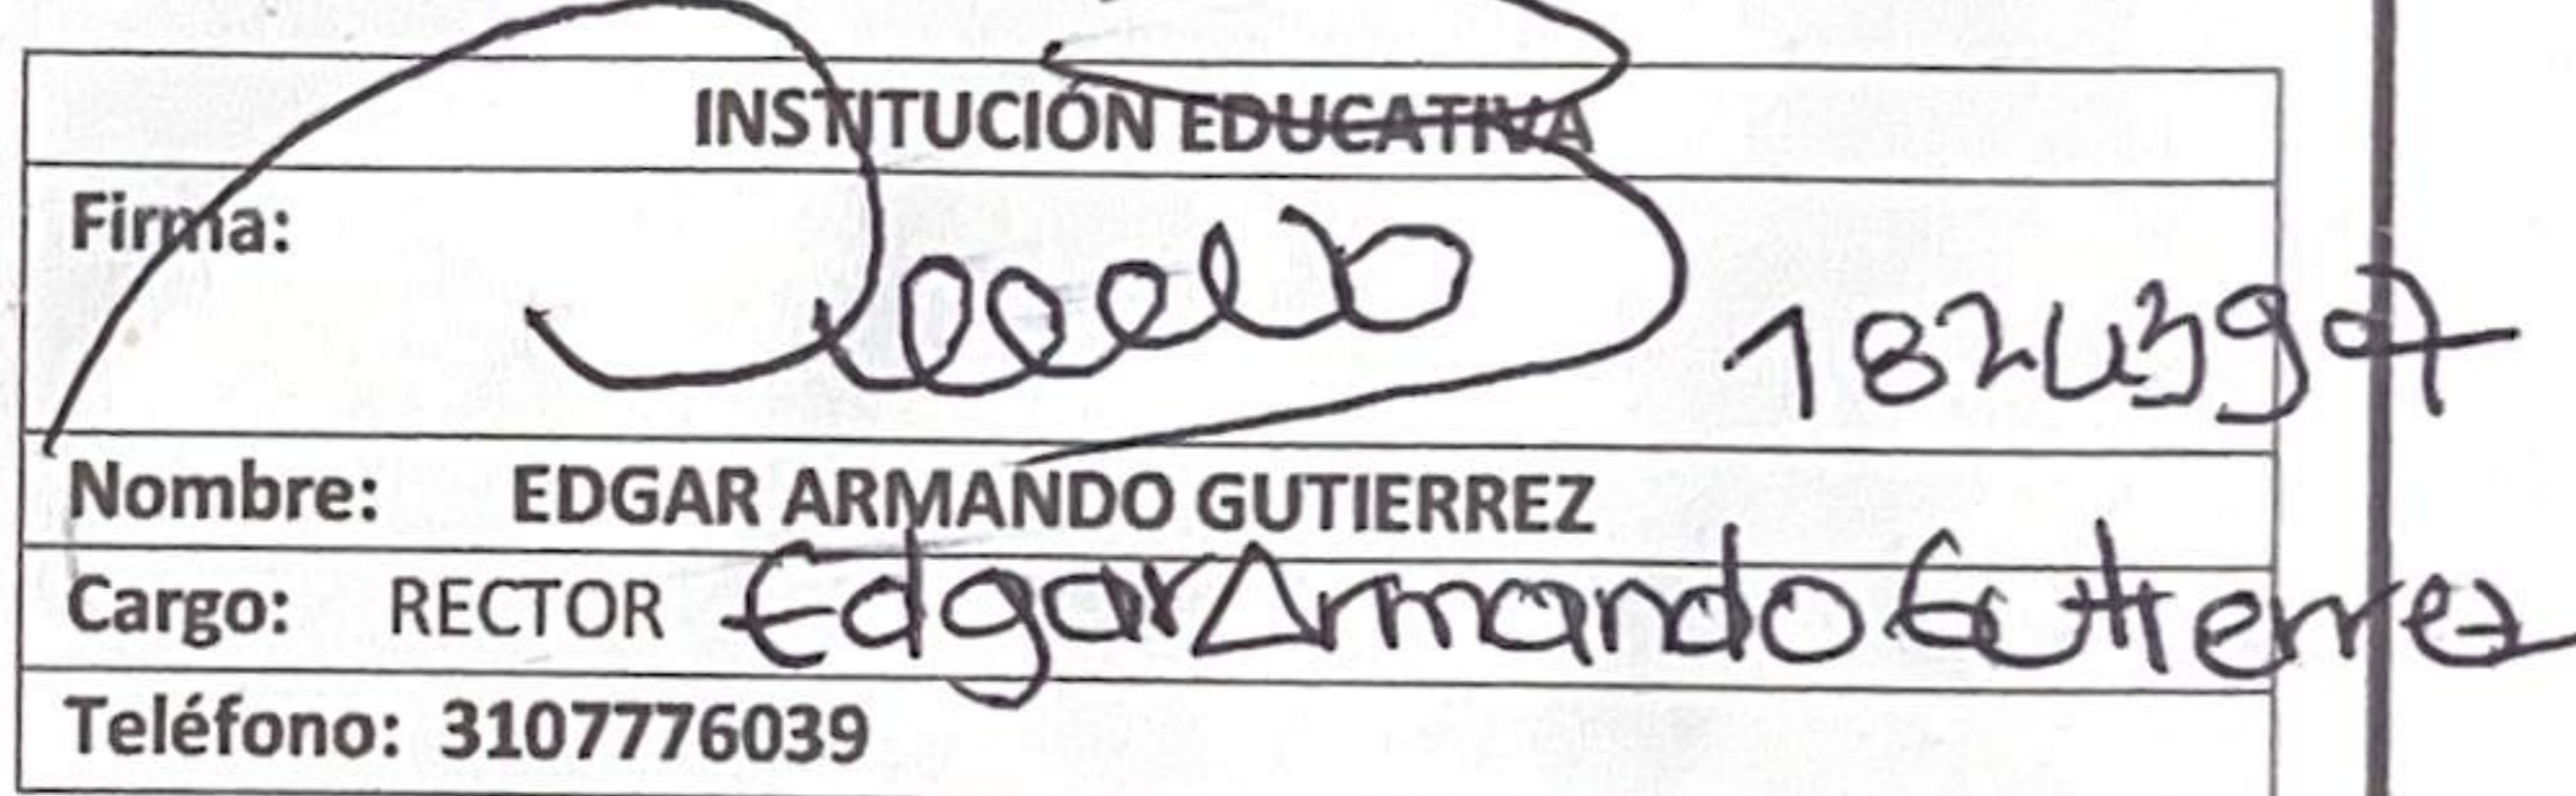 INSTITUCIÓN EDUCATIVA
Firma:
18243997
Nombre: EDGAR ARMANDO GUTIERREZ
Cargo: RECTOR Edgar Armando Gutierrez
Teléfono: 3107776039